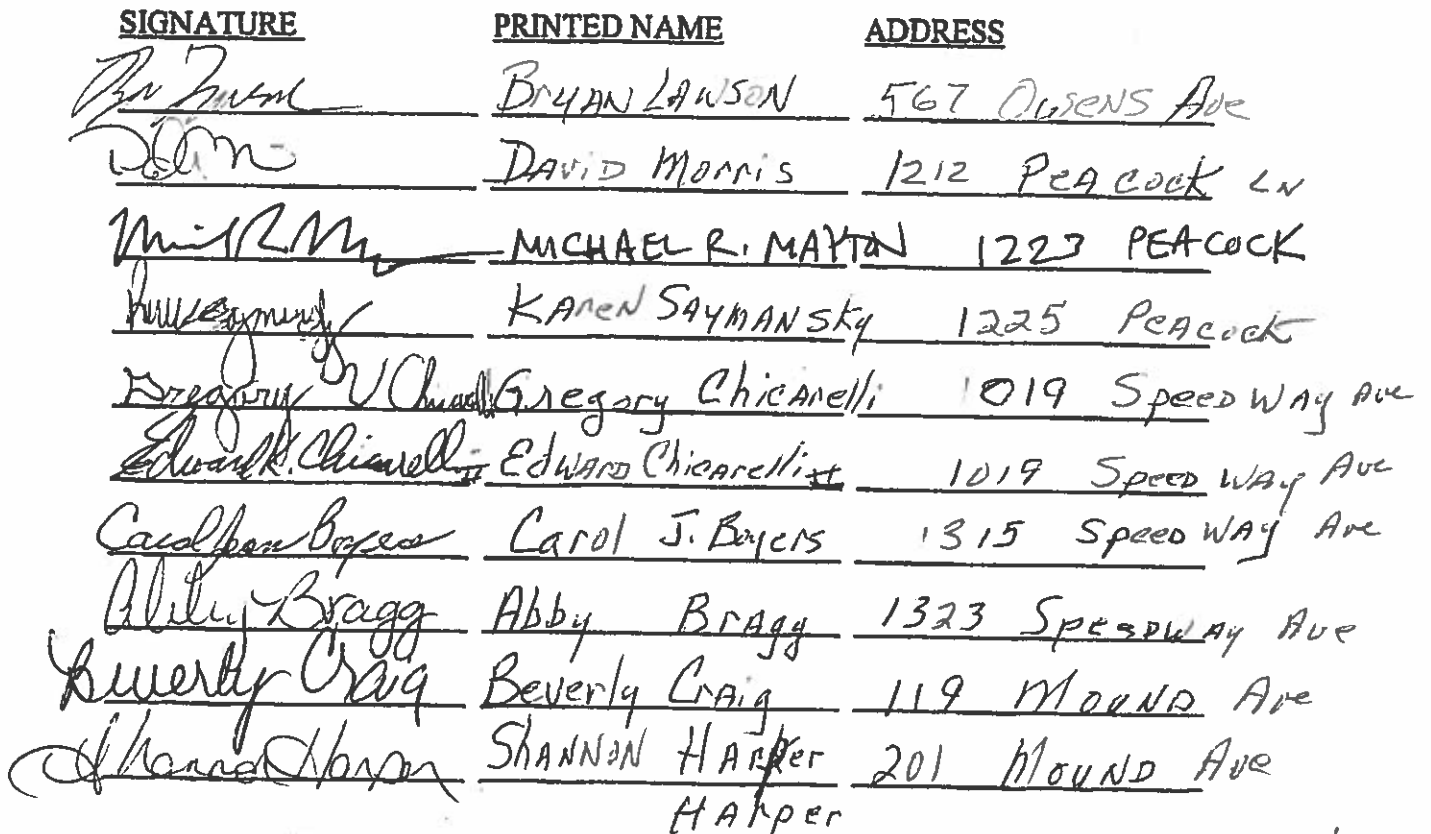 SIGNATURE PRINTED NAME ADDRESS
BryAN LAWSON 567 Owens Ave
DAviD Morris 1212 PeAcock LN
MICHAEL R. MAYTON 1223 PEACOCK
KAreN SAYMANSky 1225 PeAcock
Gregory V Chicarelli Gregory ChicArelli 1019 SpeeDWAy Ave
Edward K. Chicarelli II EdwArD ChicArelli II 1019 SpeeD WAy Ave
Carol Jean Boyers Carol J. Boyers 1315 SpeeD WAy Ave
Abby Bragg Abby BrAgg 1323 SpeeDWAy Ave
Beverly Craig Beverly CrAig 119 MouND Ave
Shannon Harper SHANNON HArper 201 MouND Ave
HArper